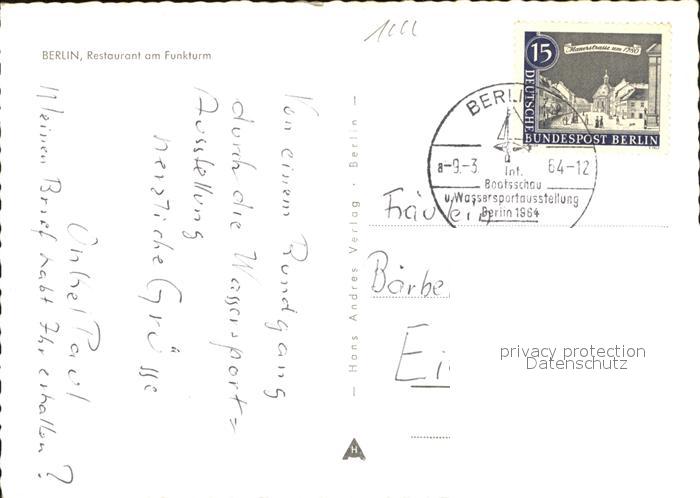 BERLIN, Restaurant am Funkturm
Von einem Rundgang
durch die Wassersport=
Ausstellung
herzliche Grüsse
Onkel Paul
Meinen Brief habt Ihr erhalten?
— Hans Andres Verlag · Berlin —
H
15
Mauerstrasse um 1780
DEUTSCHE
BUNDESPOST BERLIN
BERLIN
a-9.-3
64-12
Int.
Bootsschau
u. Wassersportausstellung
Berlin 1964
Fräulein
Bärbe
Ei
privacy protection
Datenschutz